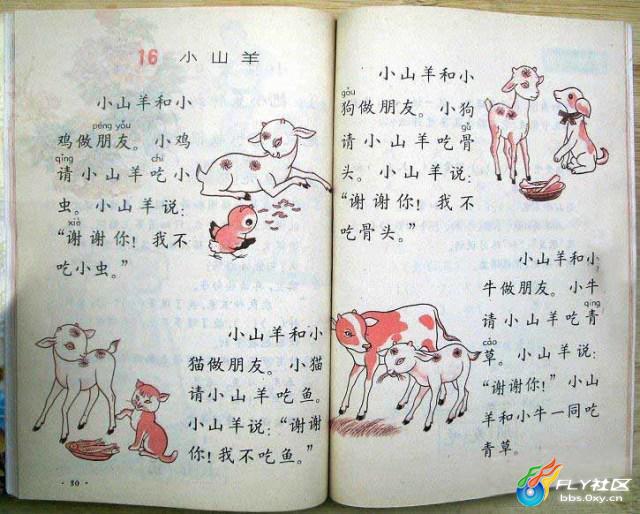 16 小山羊
小山羊和小
péng yǒu
鸡做朋友。小鸡
qǐng chī
请小山羊吃小
虫。小山羊说：
xiè
“谢谢你！我不
吃小虫。”
小山羊和小
猫做朋友。小猫
请小山羊吃鱼。
小山羊说：“谢谢
你！我不吃鱼。”
·30·
小山羊和小
gǒu
狗做朋友。小狗
gǔ
请小山羊吃骨
头。小山羊说：
“谢谢你！我不
吃骨头。”
小山羊和小
牛做朋友。小牛
qīng
请小山羊吃青
cǎo
草。小山羊说：
“谢谢你！”小山
羊和小牛一同吃
青草。
FLY社区
bbs.0xy.cn